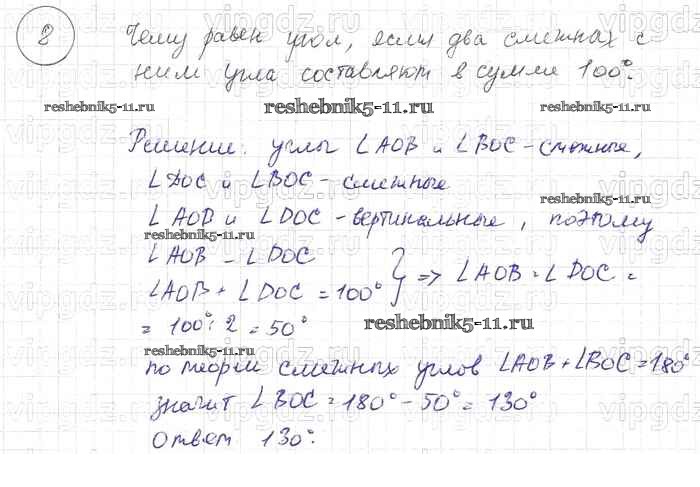 8
Чему равен угол, если два смежнах с
ним угла составляют в сумме 100°.
reshebnik5-11.ru reshebnik5-11.ru reshebnik5-11.ru
Решение: углы ∠AOB и ∠BOC - смежные,
∠DOC и ∠BOC - смежные
reshebnik5-11.ru
∠AOB и ∠DOC - вертикальные, поэтому
reshebnik5-11.ru
∠AOB = ∠DOC
∠AOB + ∠DOC = 100° } => ∠AOB = ∠DOC =
= 100° : 2 = 50°
reshebnik5-11.ru
по теории смежных углов ∠AOB + ∠BOC = 180°
значит ∠BOC = 180° - 50° = 130°
Ответ 130°.
vipgdz.ru